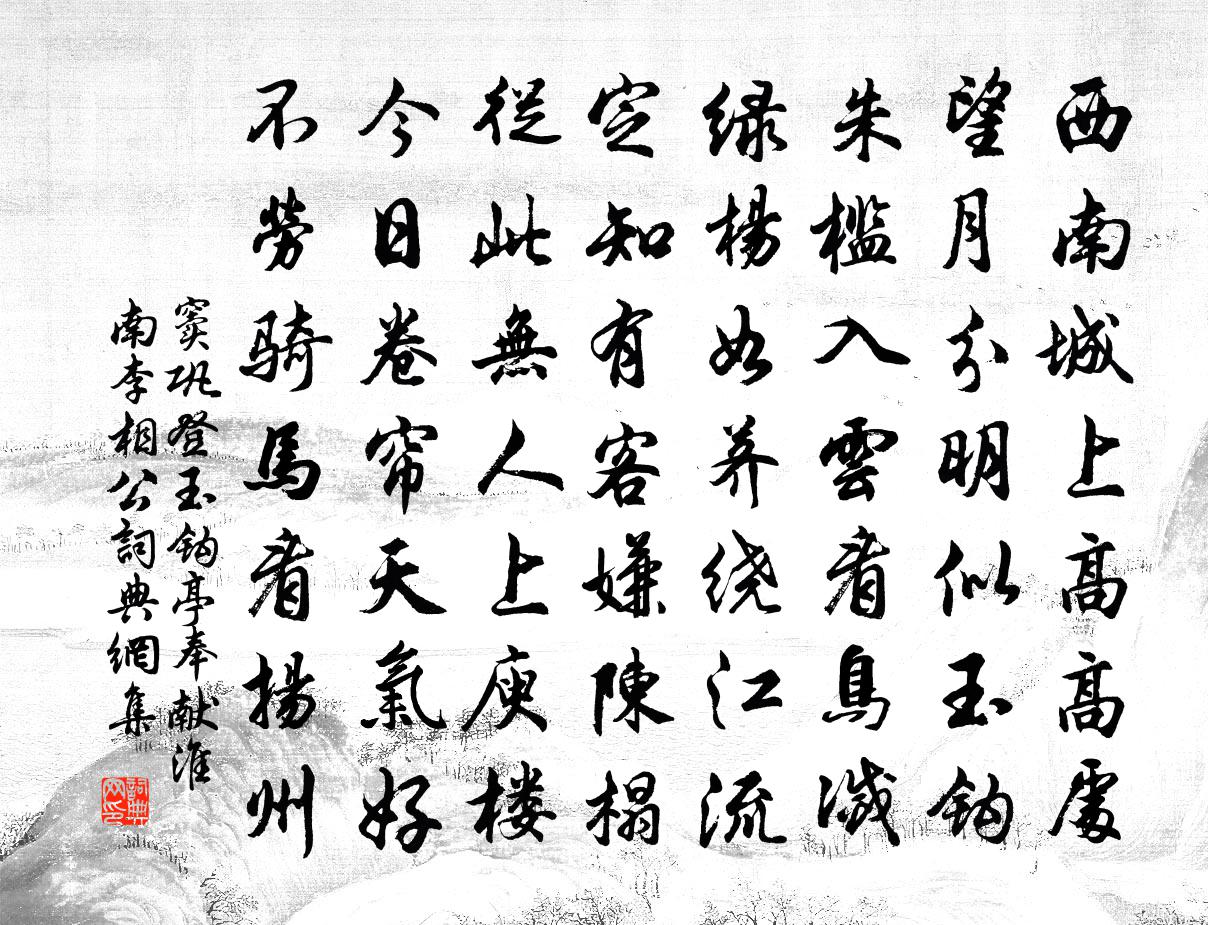 西南城上高高處
望月分明似玉鈎
朱檻入雲看鳥滅
绿楊如荠绕江流
定知有客嫌陳榻
從此無人上庾楼
今日卷帘天氣好
不勞騎馬看揚州
窦巩登玉鈎亭奉献淮
南李相公詞典網集
詞典网印